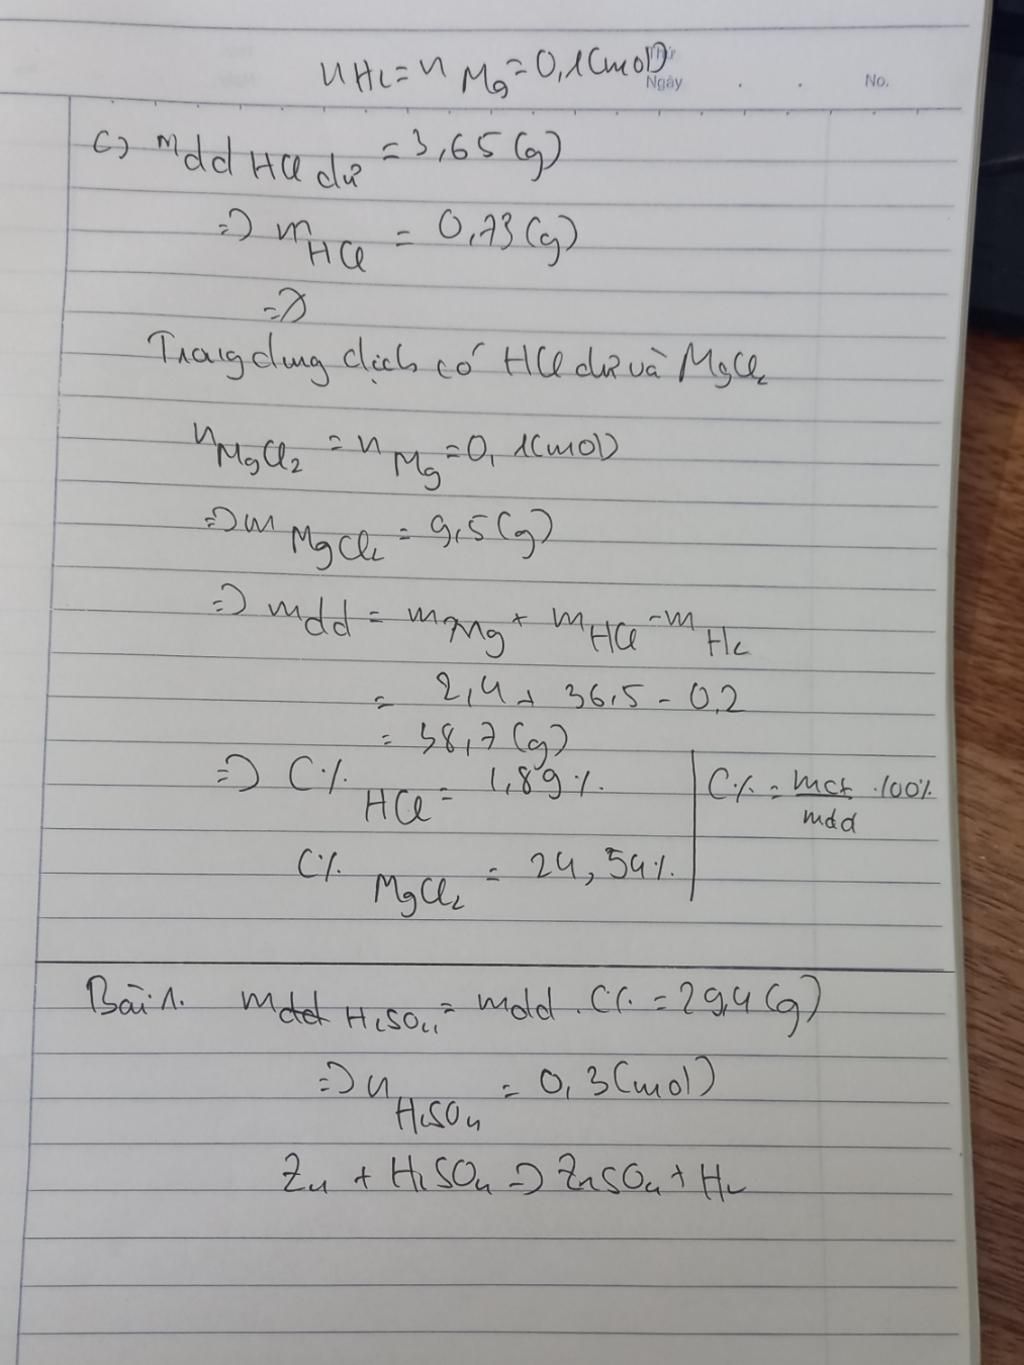 Thứ
nH₂ = nMg = 0,1(mol)
Ngày . . No.
c) mdd HCl dư = 3,65 (g)
=> mHCl = 0,73 (g)
=>
Trong dung dịch có HCl dư và MgCl₂
nMgCl₂ = nMg = 0,1(mol)
=> mMgCl₂ = 9,5 (g)
=> mdd = mMg + mHCl - mH₂
= 2,4 + 36,5 - 0,2
= 38,7 (g)
=> C% HCl = 1,89%.
C% = mct/mdd .100%
C% MgCl₂ = 24,54%.
Bài 1. mdd H₂SO₄ = mdd . C% = 29,4 (g)
=> nH₂SO₄ = 0,3 (mol)
Zn + H₂SO₄ => ZnSO₄ + H₂